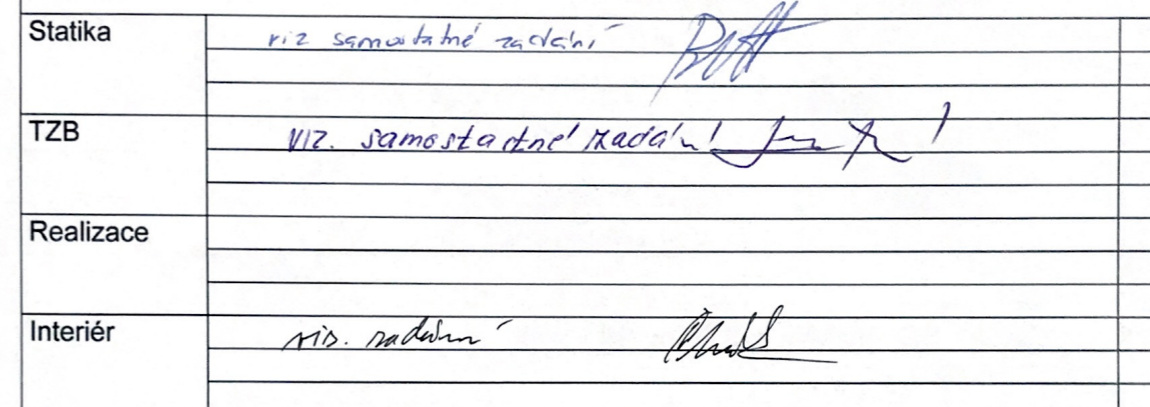 Statika
viz samostatné zadání
TZB
viz. samostatné zadání
Realizace
Interiér
viz. zadání